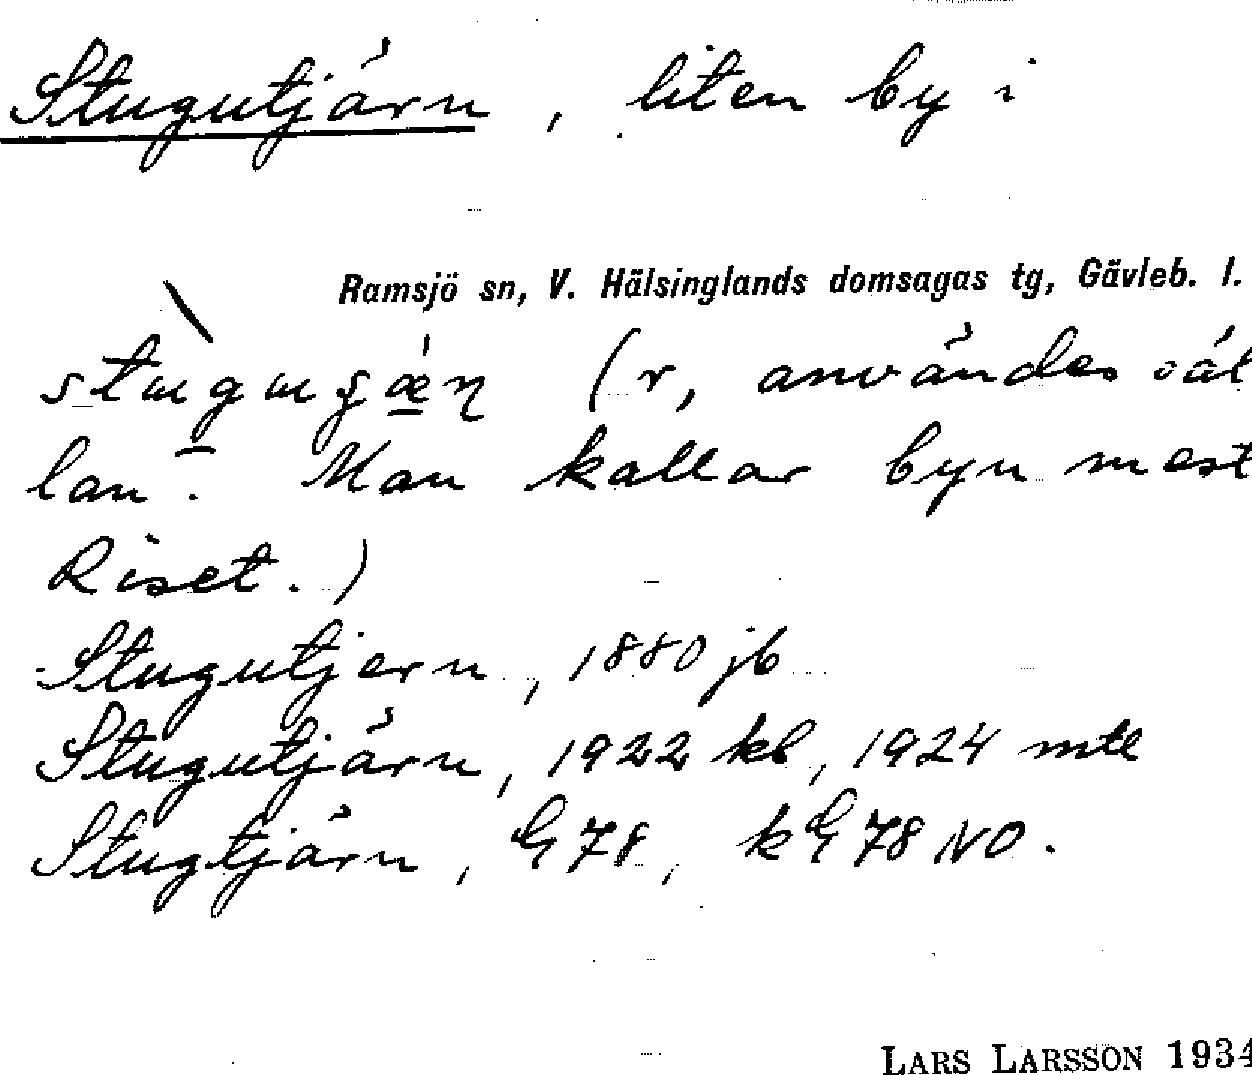 Stugutjärn, liten by i
Ramsjö sn, V. Hälsinglands domsagas tg, Gävleb. l.
(r, användes säl
lan. Man kallar byn mest
Riset.)
Stugutjern, 1880 jb
Stugutjärn, 1922 kb, 1924 mtl
Stugtjärn, G78, kG78 NO.
LARS LARSSON 1934